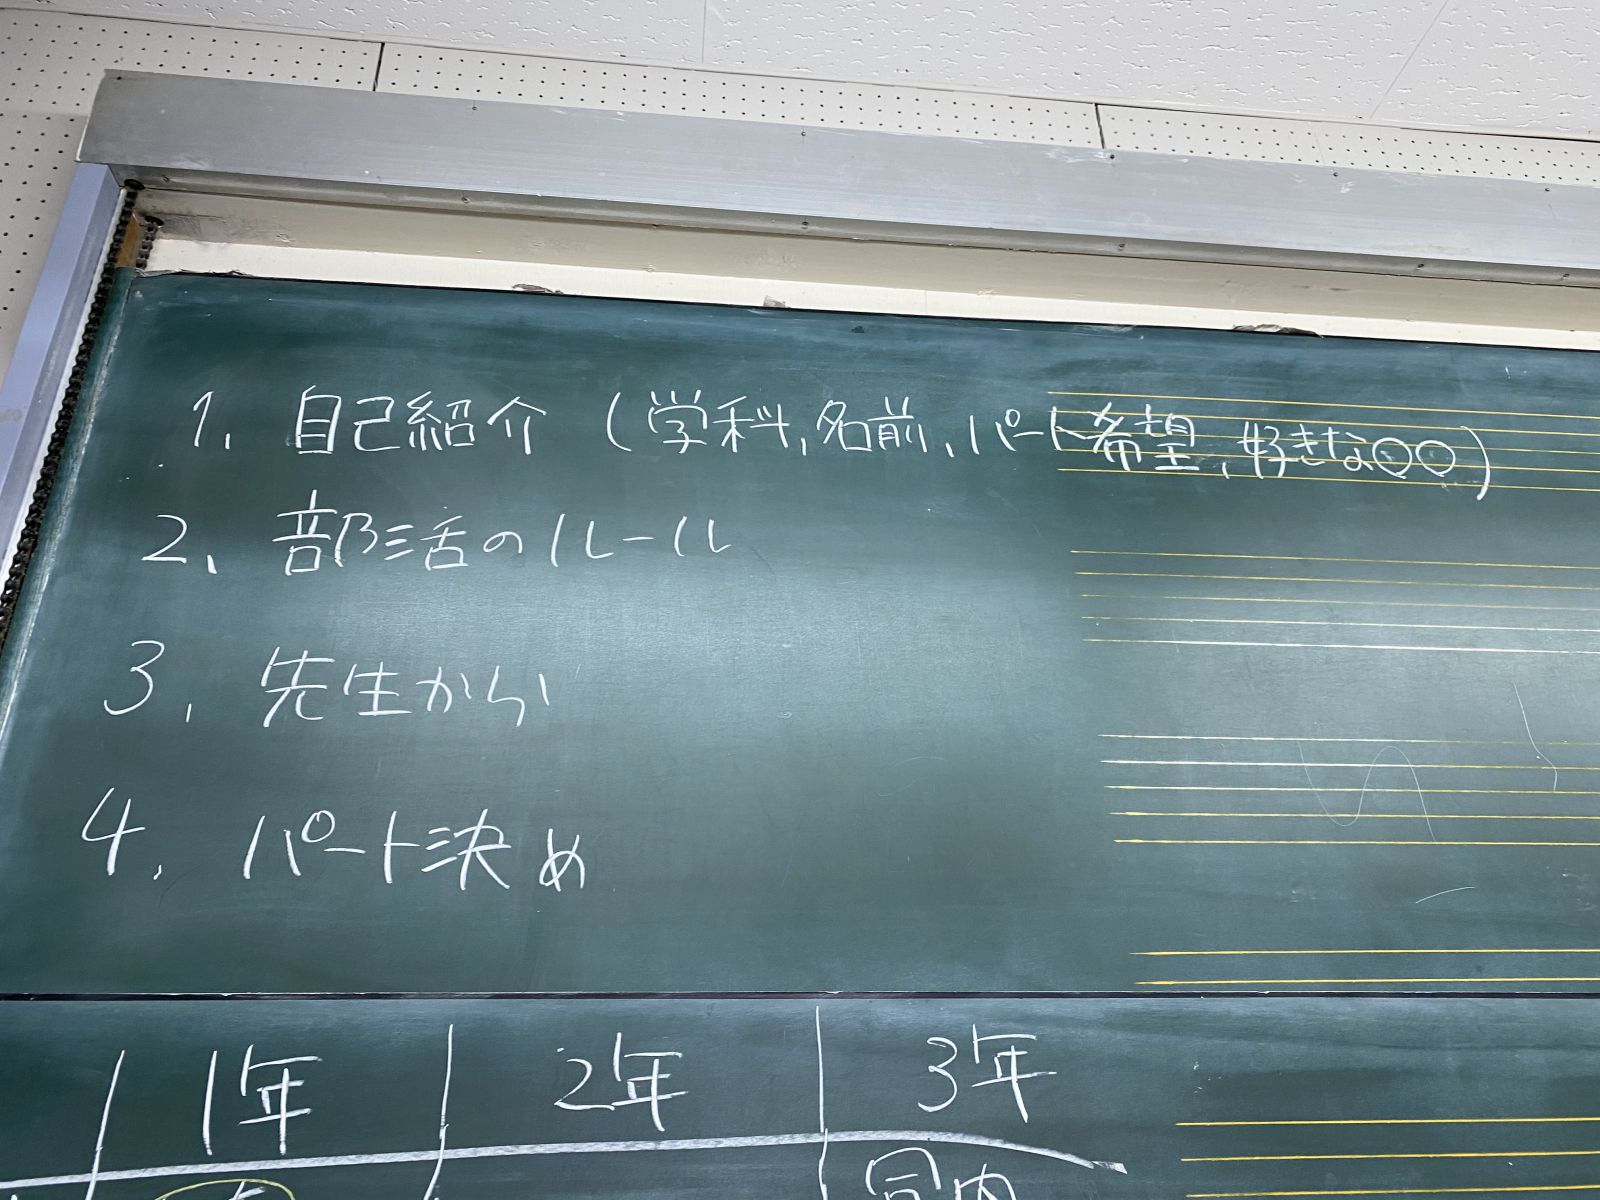 1. 自己紹介 (学科, 名前, パート希望, 好きな○○)
2. 部活のルール
3. 先生から
4. パート決め
1年 2年 3年